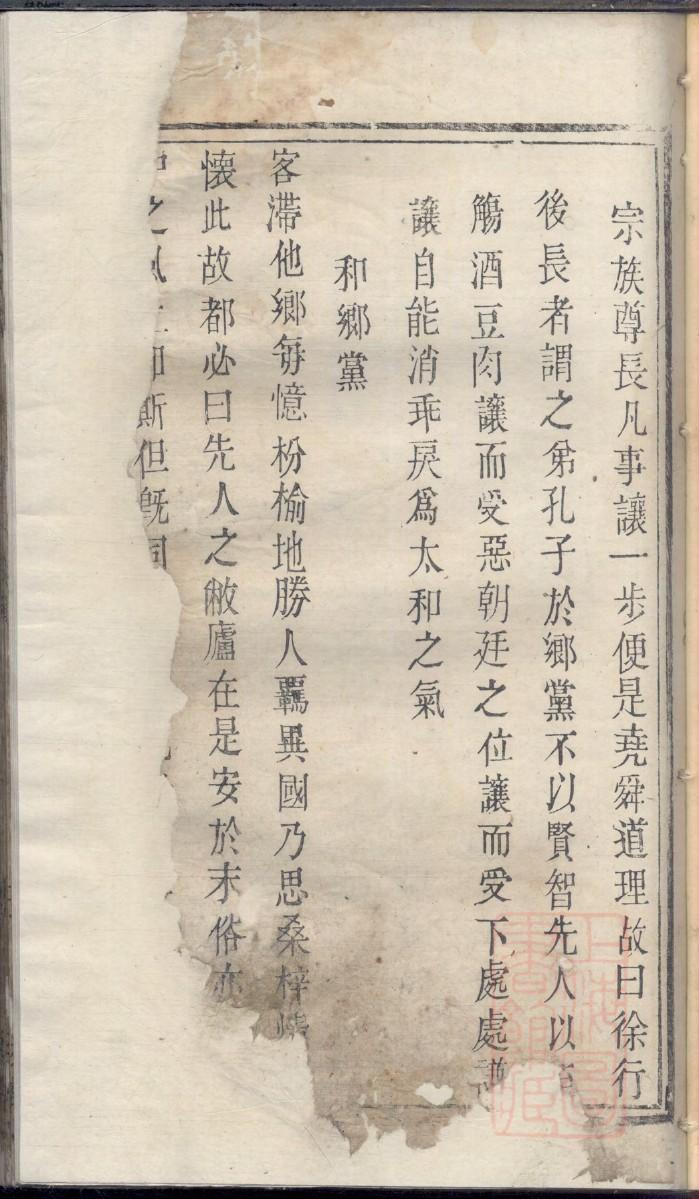 宗族尊長凡事讓一步便是堯舜道理故曰徐行
後長者謂之弟孔子於鄉黨不以賢智先人以
觴酒豆肉讓而受惡朝廷之位讓而受下處處
讓自能消乖戾爲太和之氣
和鄉黨
客滯他鄉每憶枌榆地勝人羈異國乃思桑梓
懐此故都必曰先人之敝廬在是安於末俗亦
之 斯但旣同